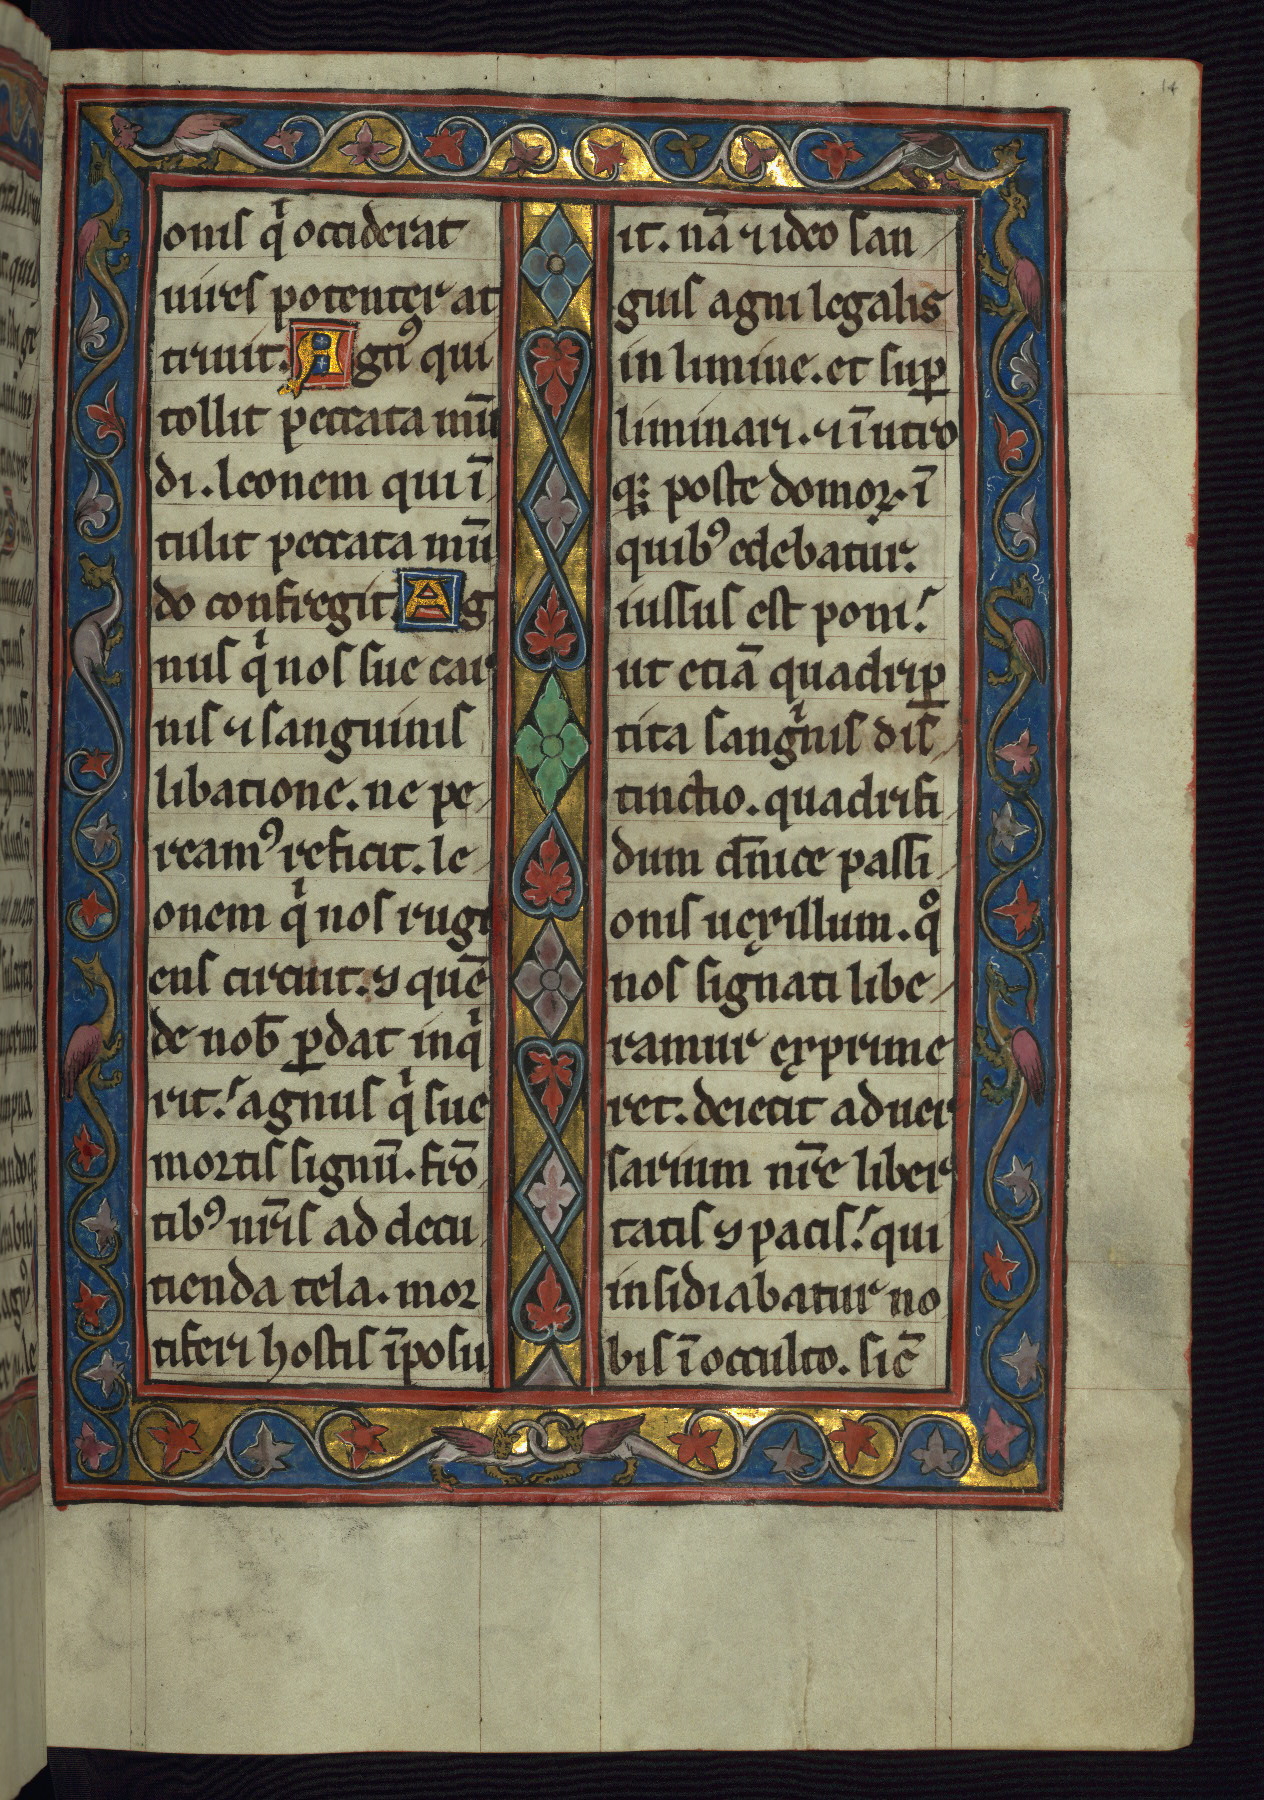 14
onis qͥ occiderat
uires potenter at
triuit. Agnꝰ qui
tollit peccata mū
di. leonem qui ī
tulit peccata mū
do confregit. Ag
nus qͥ nos sue car
nis ⁊ sanguinis
libatione. ne pe
reamꝰ reficit. le
onem qͥ nos rugi
ens circuit. ⁊ quē
de nob̄ ꝑdat inqͥ
rit. agnus qͥ sue
mortis signū. frō
tibꝰ nr̄is ad decu
tienda tela. mor
tiferi hostis īposu
it. nā ⁊ ideo san
guis agni legalis
in limine. et suꝑ
liminari. ⁊ ī utro
qꝫ poste domoꝝ. ī
quibꝰ edebatur.
iussus est poni.
ut etiā quadriꝑ
tita sangͥnis dis
tinctio. quadrifi
dum dn̄ice passi
onis uexillum. qͦ
nos signati libe
ramur exprime
ret. deiecit aduer
sarium nr̄e liber
tatis ⁊ pacis. qui
insidiabatur no
bis ī occulto. sic̄